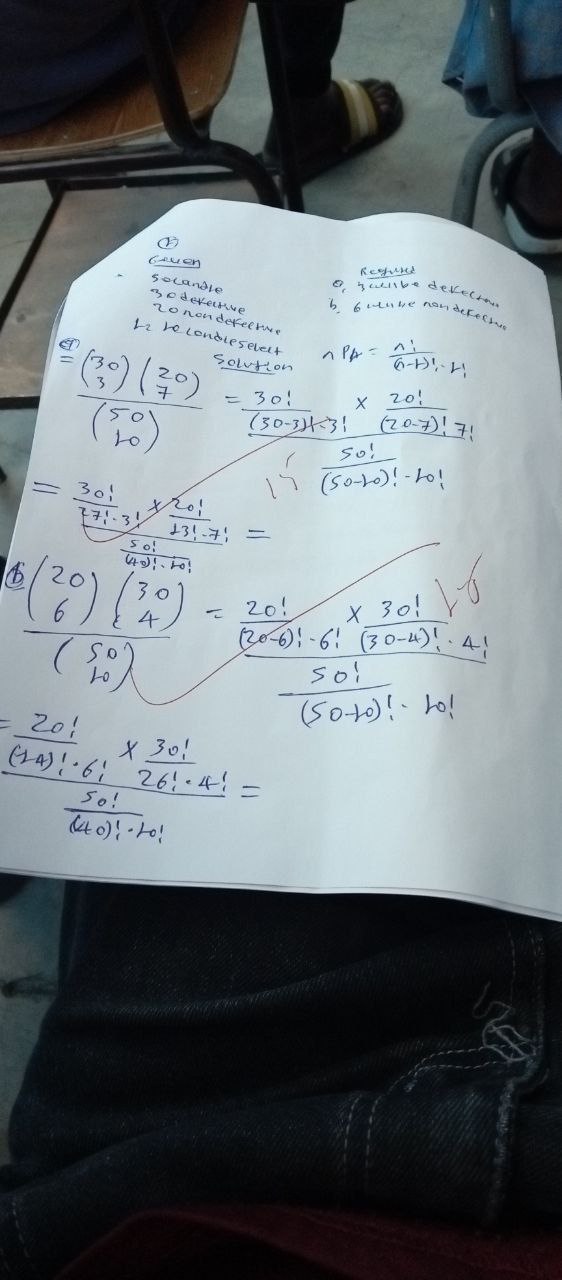 Given
50 candle
30 defective
20 non defective
10 candle select
Required
a, 3 will be defective
b, 6 will be non defective
Solution
nPr = n! / (n-r)! · r!
= (30 3) (20 7) / (50 10) = 30! / (30-3)! · 3! × 20! / (20-7)! 7! / 50! / (50-10)! · 10!
= 30! / 27! · 3! × 20! / 13! · 7! / 50! / (40)! · 10! =
b (20 6) (30 4) / (50 10) = 20! / (20-6)! · 6! × 30! / (30-4)! · 4! / 50! / (50-10)! · 10!
= 20! / (14)! · 6! × 30! / 26! · 4! / 50! / (40)! · 10! =